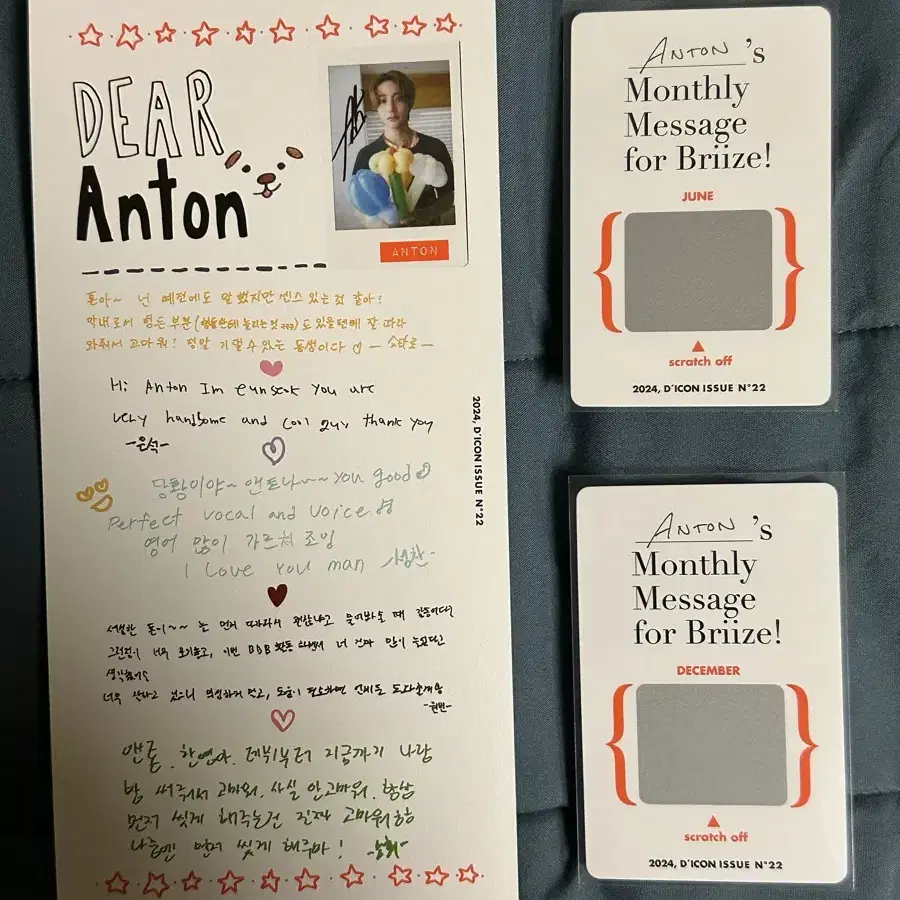 DEAR
Anton
ANTON
톤아~ 넌 예전에도 말했지만 센스 있는 것 같아!
막내로서 힘든 부분(형들한테 놀리는것 ㅋㅋㅋ)도 있을텐데 잘 따라
와줘서 고마워! 정말 기댈 수 있는 동생이다 ♡ - 쇼타로 -
Hi Anton Im eunseok you are
very handsome and cool guy thank you
-은석-
당황이야~ 앤토나~~ you good
Perfect vocal and voice
영어 많이 가르쳐 조잉
I love you man 성찬-
2024, D'ICON ISSUE N°22
톤이~~ 는 먼저 다가와서
너무 이번 너 많이
생각했어
너무 잘하고 있으니
-원빈-
앤톤, 찬영아. 데뷔부터 지금까지 나랑
방 써주서 고마워. 사실 안고마워. 항상
먼저 씻게 해주는건 진짜 고마워 핳
나중엔 먼저 씻게 해주마!
ANTON's
Monthly
Message
for Briize!
JUNE
scratch off
2024, D'ICON ISSUE N°22
ANTON's
Monthly
Message
for Briize!
DECEMBER
scratch off
2024, D'ICON ISSUE N°22